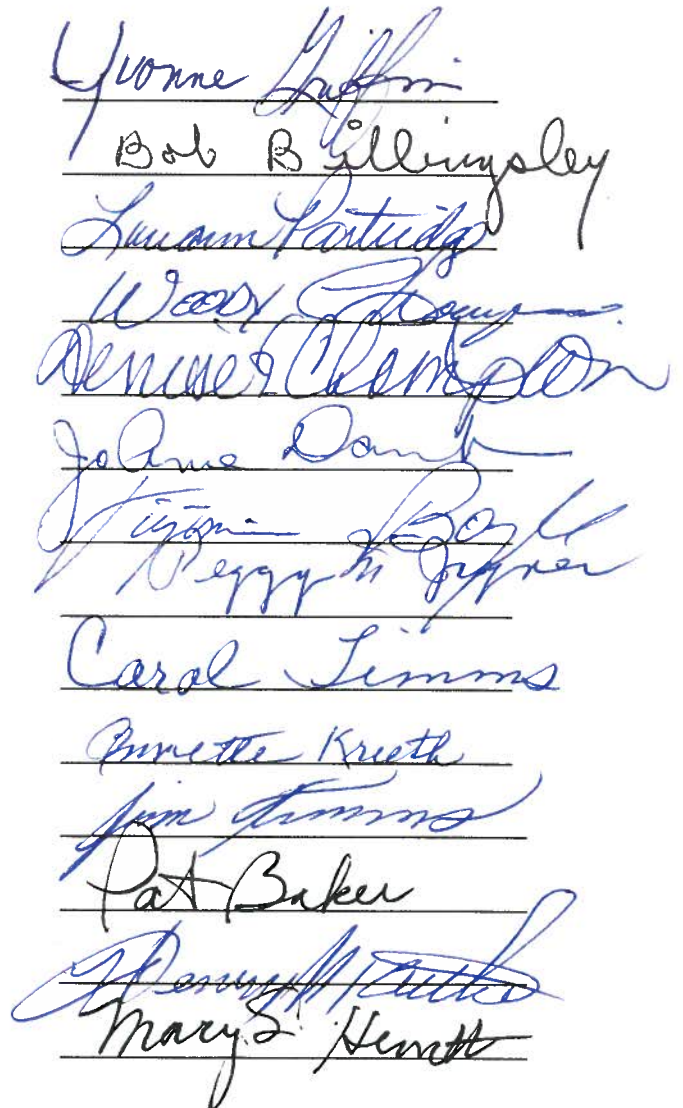 Yvonne Griffin
Bob Billingsley
Louann Partridge
Woody Thompson
Denise Champton
JoAnne
Virginia Boyle
Peggy M Joyner
Carol Timms
Annette Kreeth
Jim Timms
Pat Baker
Henry M
Mary S. Hewitt